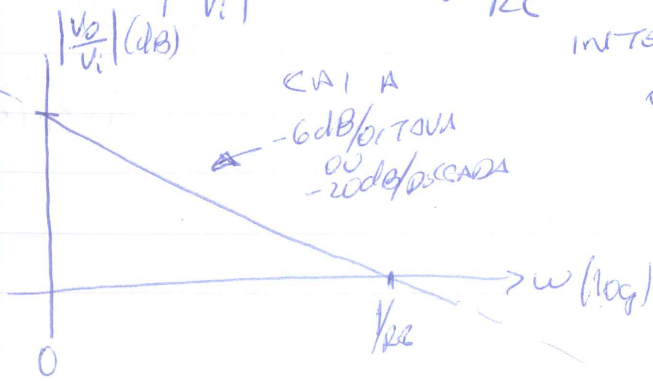 |Vi| RC
|Vo/Vi| (dB)
INTE
CAI A
-6dB/OITAVA
OU
-20dB/DECADA
ω (log)
1/RC
0